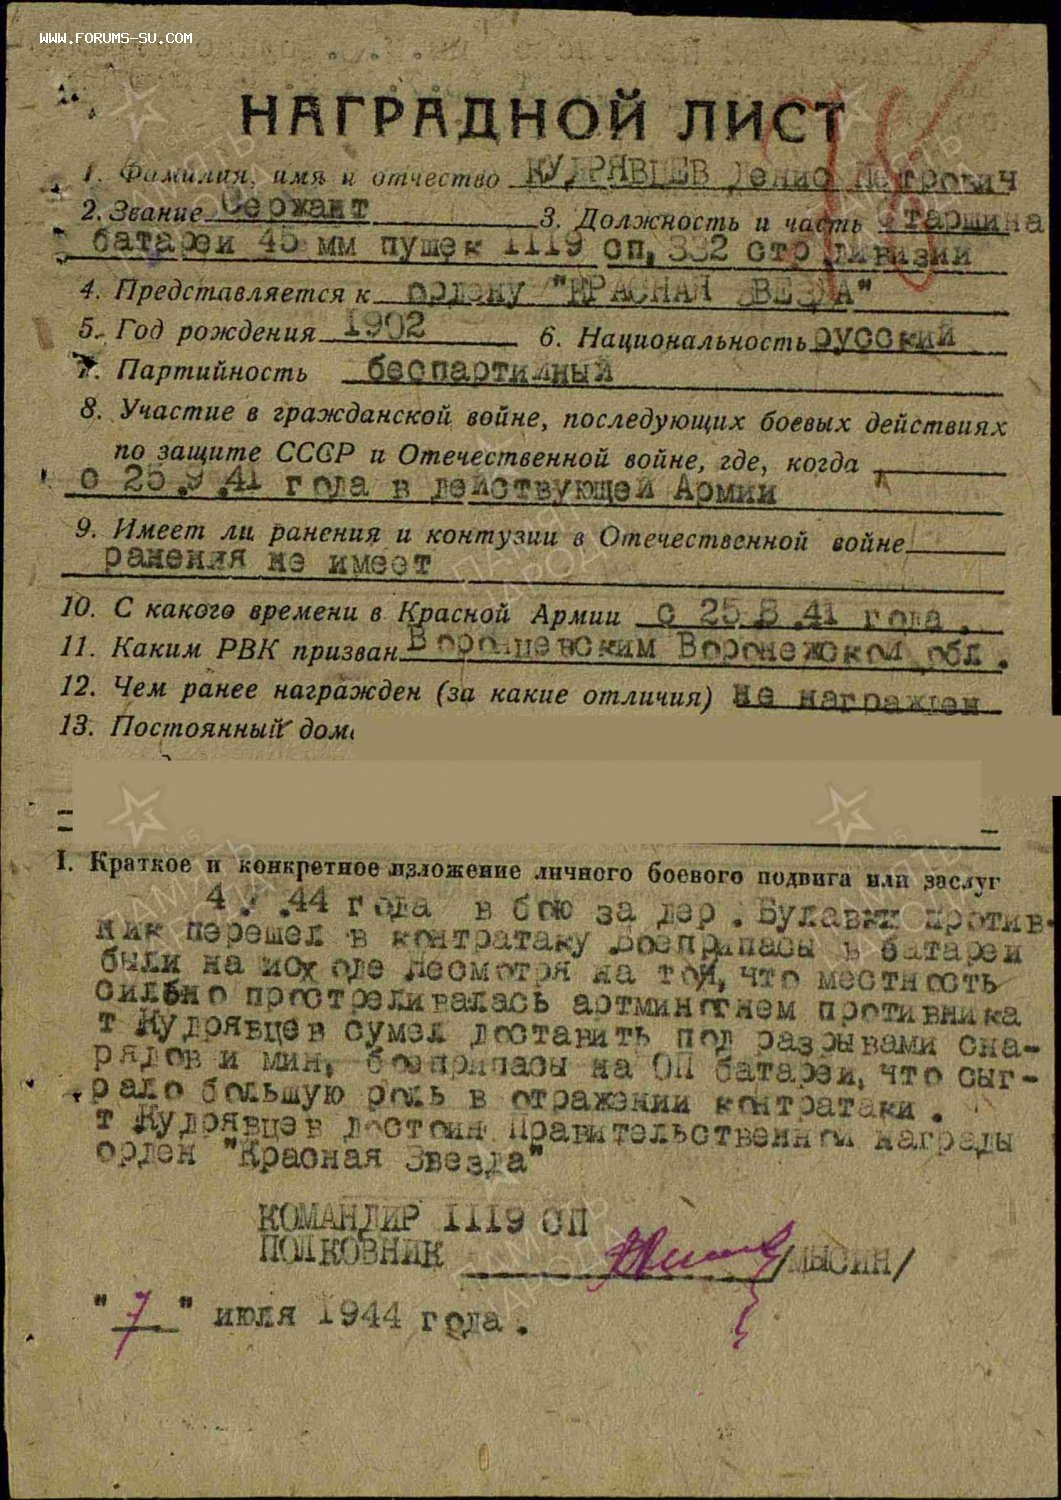 WWW.FORUMS-SU.COM
НАГРАДНОЙ ЛИСТ
1. Фамилия, имя и отчество КУДРЯВЦЕВ Денис Петрович
2. Звание Сержант 3. Должность и часть Старшина
батареи 45 мм пушек 1119 сп, 332 стр дивизии
4. Представляется к ордену "КРАСНАЯ ЗВЕЗДА"
5. Год рождения 1902 6. Национальность русский
7. Партийность беспартийный
8. Участие в гражданской войне, последующих боевых действиях
по защите СССР и Отечественной войне, где, когда
с 25.9.41 года в действующей Армии
9. Имеет ли ранения и контузии в Отечественной войне
ранения не имеет
10. С какого времени в Красной Армии с 25.8.41 года.
11. Каким РВК призван Воронежской обл.
12. Чем ранее награжден (за какие отличия) не награжден
13. Постоянный дома
I. Краткое и конкретное изложение личного боевого подвига или заслуг
44 года в бою за дер. Булавки против-
ник перешел в контратаку Боеприпасы в батареи
были на исходе Несмотря на той, что местность
сильно простреливалась артминогнем противника
т Кудрявцев сумел доставить под разрывами сна-
рядов и мин, боеприпасы на ОП батареи, что сыг-
рало большую роль в отражении контратаки.
т Кудрявцев достоин Правительственной награды
орден "Красная Звезда"
КОМАНДИР 1119 СП
ПОЛКОВНИК /МЫСИН/
"7" июля 1944 года.